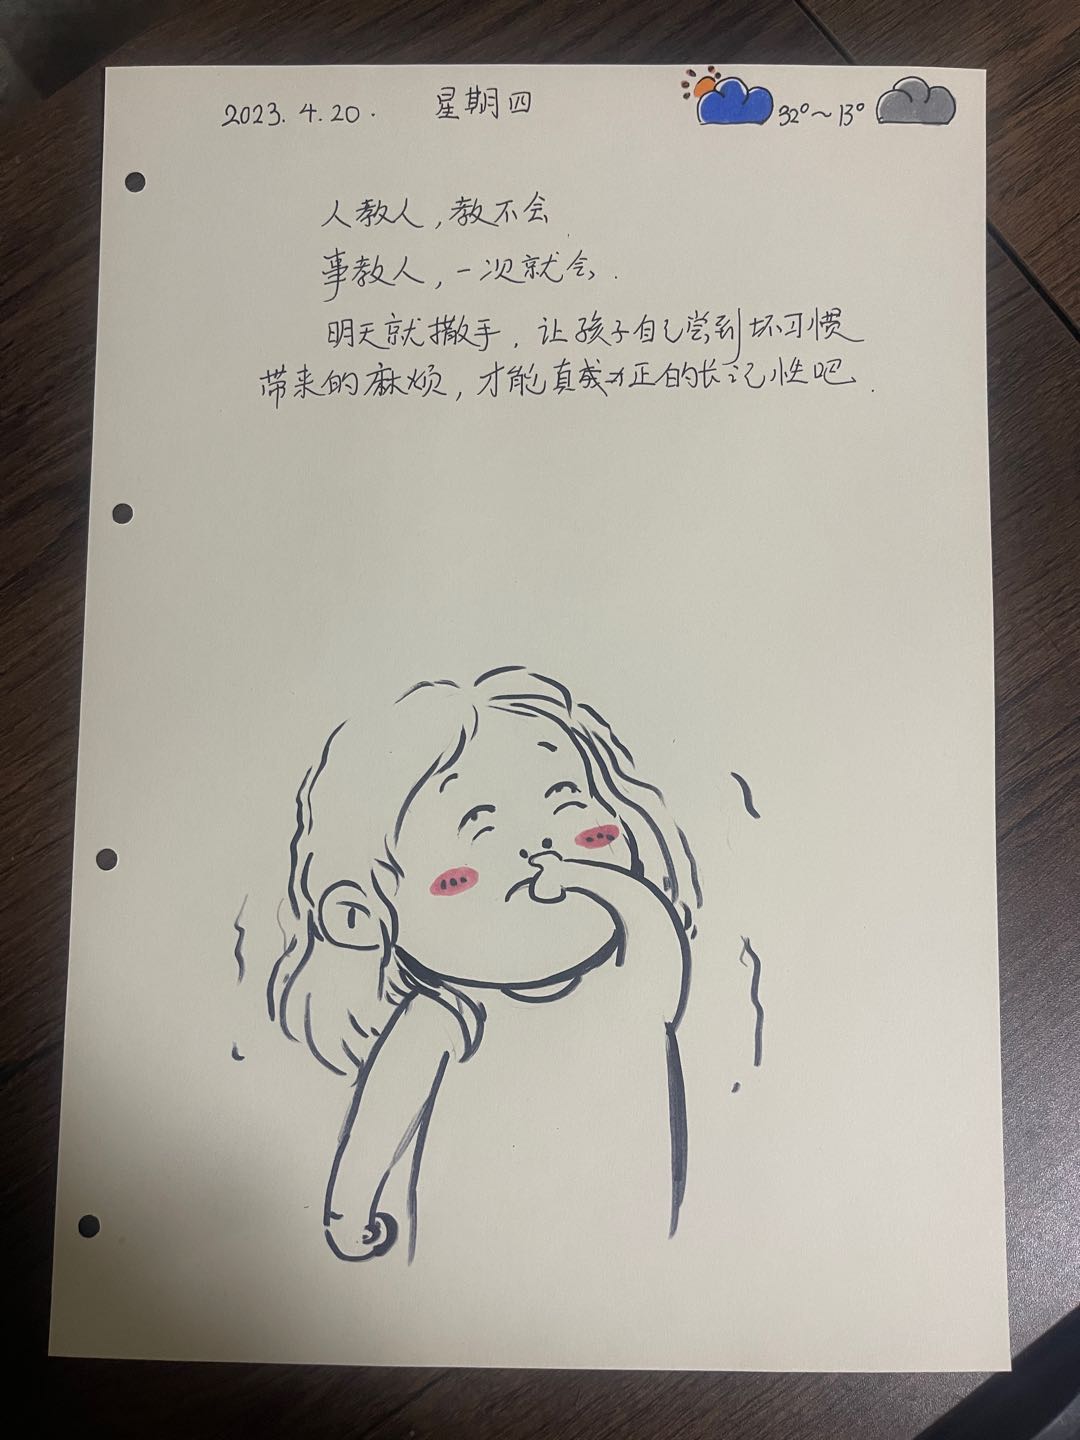 2023.4.20. 星期四 32°~13°
人教人,教不会
事教人,一次就会.
明天就撒手,让孩子自己尝到坏习惯
带来的麻烦,才能真正的长记性吧.